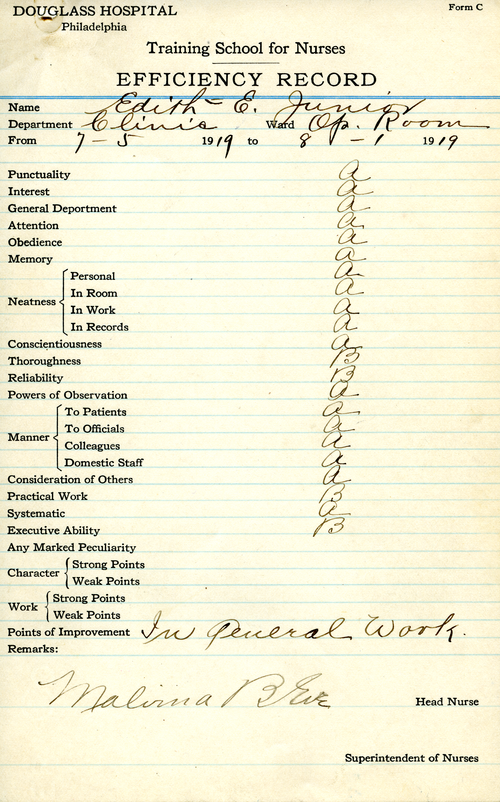 DOUGLASS HOSPITAL
Philadelphia
Form C
Training School for Nurses
EFFICIENCY RECORD
Name Edith E. Junior
Department Clinic Ward Op. Room
From 7 - 5 1919 to 8 - 1 1919
Punctuality A
Interest A
General Department A
Attention A
Obedience A
Memory A
Neatness
Personal A
In Room A
In Work A
In Records A
Conscientiousness A
Thoroughness B
Reliability B
Powers of Observation A
Manner
To Patients A
To Officials A
Colleagues A
Domestic Staff A
Consideration of Others A
Practical Work B
Systematic A
Executive Ability B
Any Marked Peculiarity
Character
Strong Points
Weak Points
Work
Strong Points
Weak Points
Points of Improvement In General Work.
Remarks:
Malvina B Head Nurse
Superintendent of Nurses